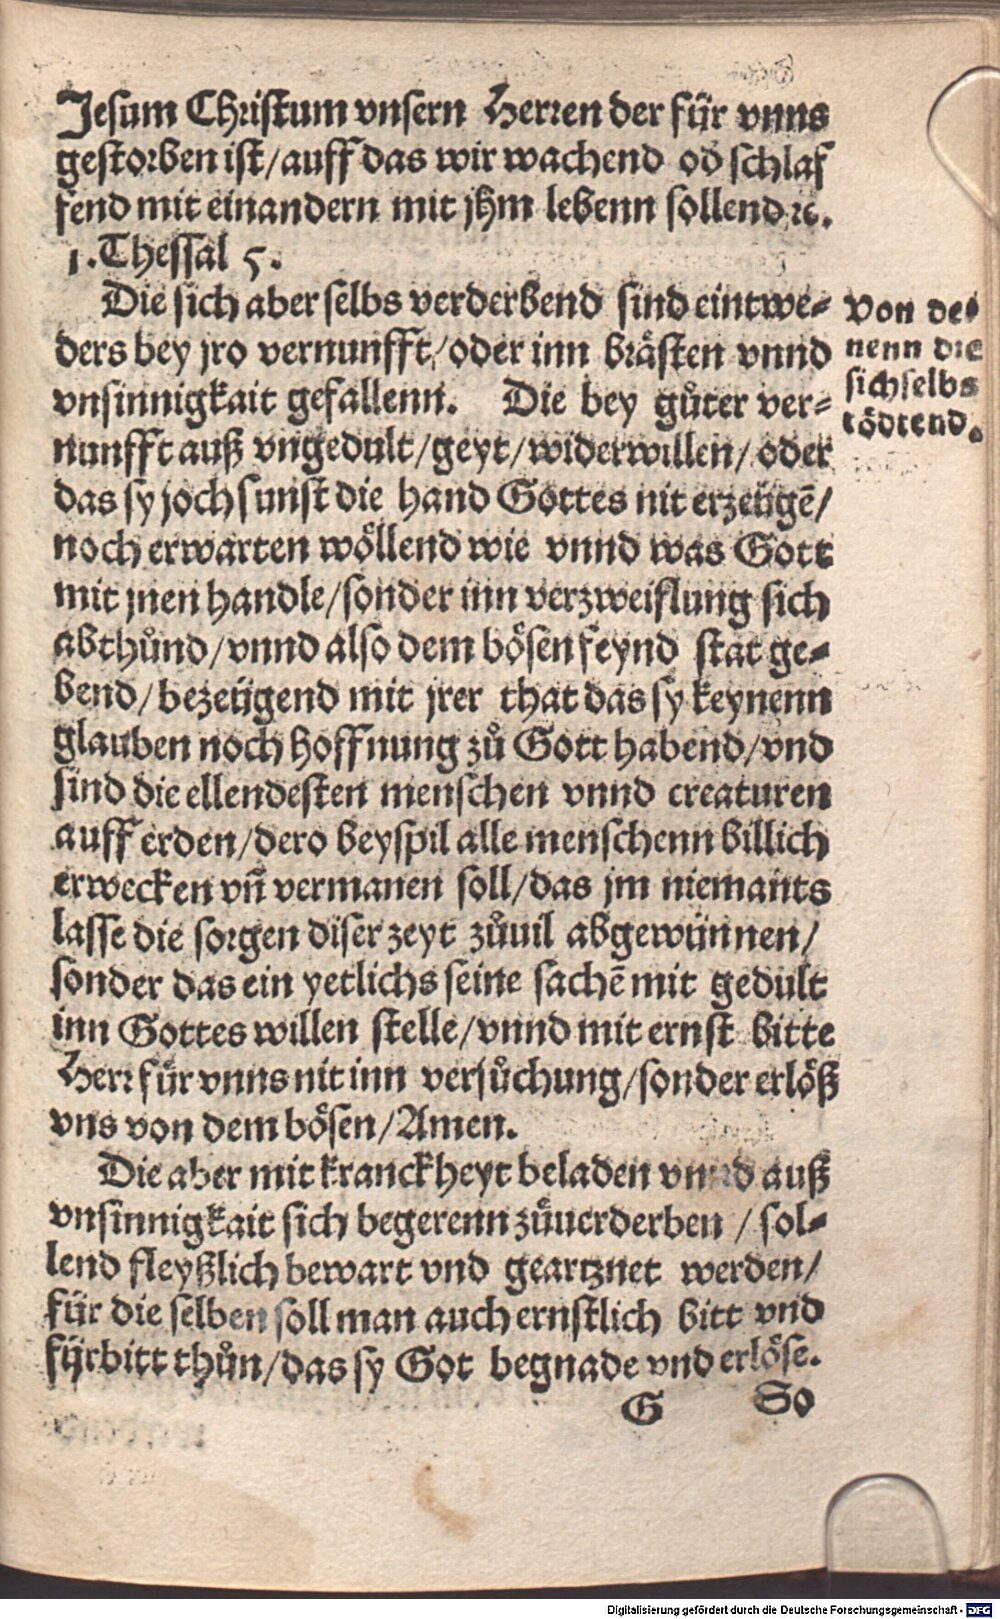 Jesum Christum vnsern Herren der für vnns
gestorben ist/auff das wir wachend od schlaf
fend mit einandern mit jhm lebenn sollend ꝛc.
1. Thessal 5.
Die sich aber selbs verderbend sind eintwe⸗
ders bey jro vernunfft/oder inn brästen vnnd
vnsinnigkait gefallenn. Die bey gůter ver⸗
nunfft auß vngedult/geyt/widerwillen/oder
das sy joch sunst die hand Gottes nit erzeügē/
noch erwarten wöllend wie vnnd was Gott
mit jnen handle/sonder inn verzweiflung sich
abthůnd/vnnd also dem bösen feynd stat ge⸗
bend/bezeügend mit jrer that das sy keynenn
glauben noch hoffnung zů Gott habend/vnd
sind die ellendesten menschen vnnd creaturen
auff erden/dero beyspil alle menschenn billich
erwecken vñ vermanen soll/das jm niemants
lasse die sorgen diser zeyt zůuil abgewünnen/
sonder das ein yetlichs seine sachē mit gedult
inn Gottes willen stelle/vnnd mit ernst bitte
Herr für vnns nit inn versůchung/sonder erlöß
vns von dem bösen/Amen.
Die aber mit kranckheyt beladen vnnd auß
vnsinnigkait sich begerenn zůuerderben / sol⸗
lend fleyßlich bewart vnd geartznet werden/
für die selben soll man auch ernstlich bitt vnd
fürbitt thůn/das sy Got begnade vnd erlöse.
G So
Von de⸗
nenn die
sich selbs
tödtend.
Digitalisierung gefördert durch die Deutsche Forschungsgemeinschaft - DFG